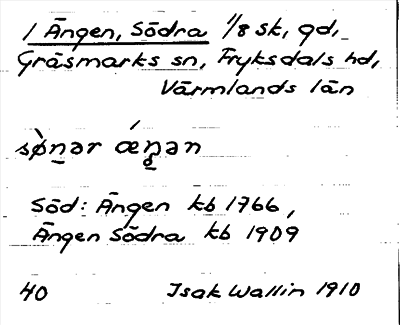 1 Ängen, Södra 1/8 sk, gd,
Gräsmarks sn, Fryksdals hd,
Värmlands län
sø̀n̲ər ǽŋ̲ən
Söd: Ängen kb 1766,
Ängen Södra kb 1909
40 Isak Wallin 1910